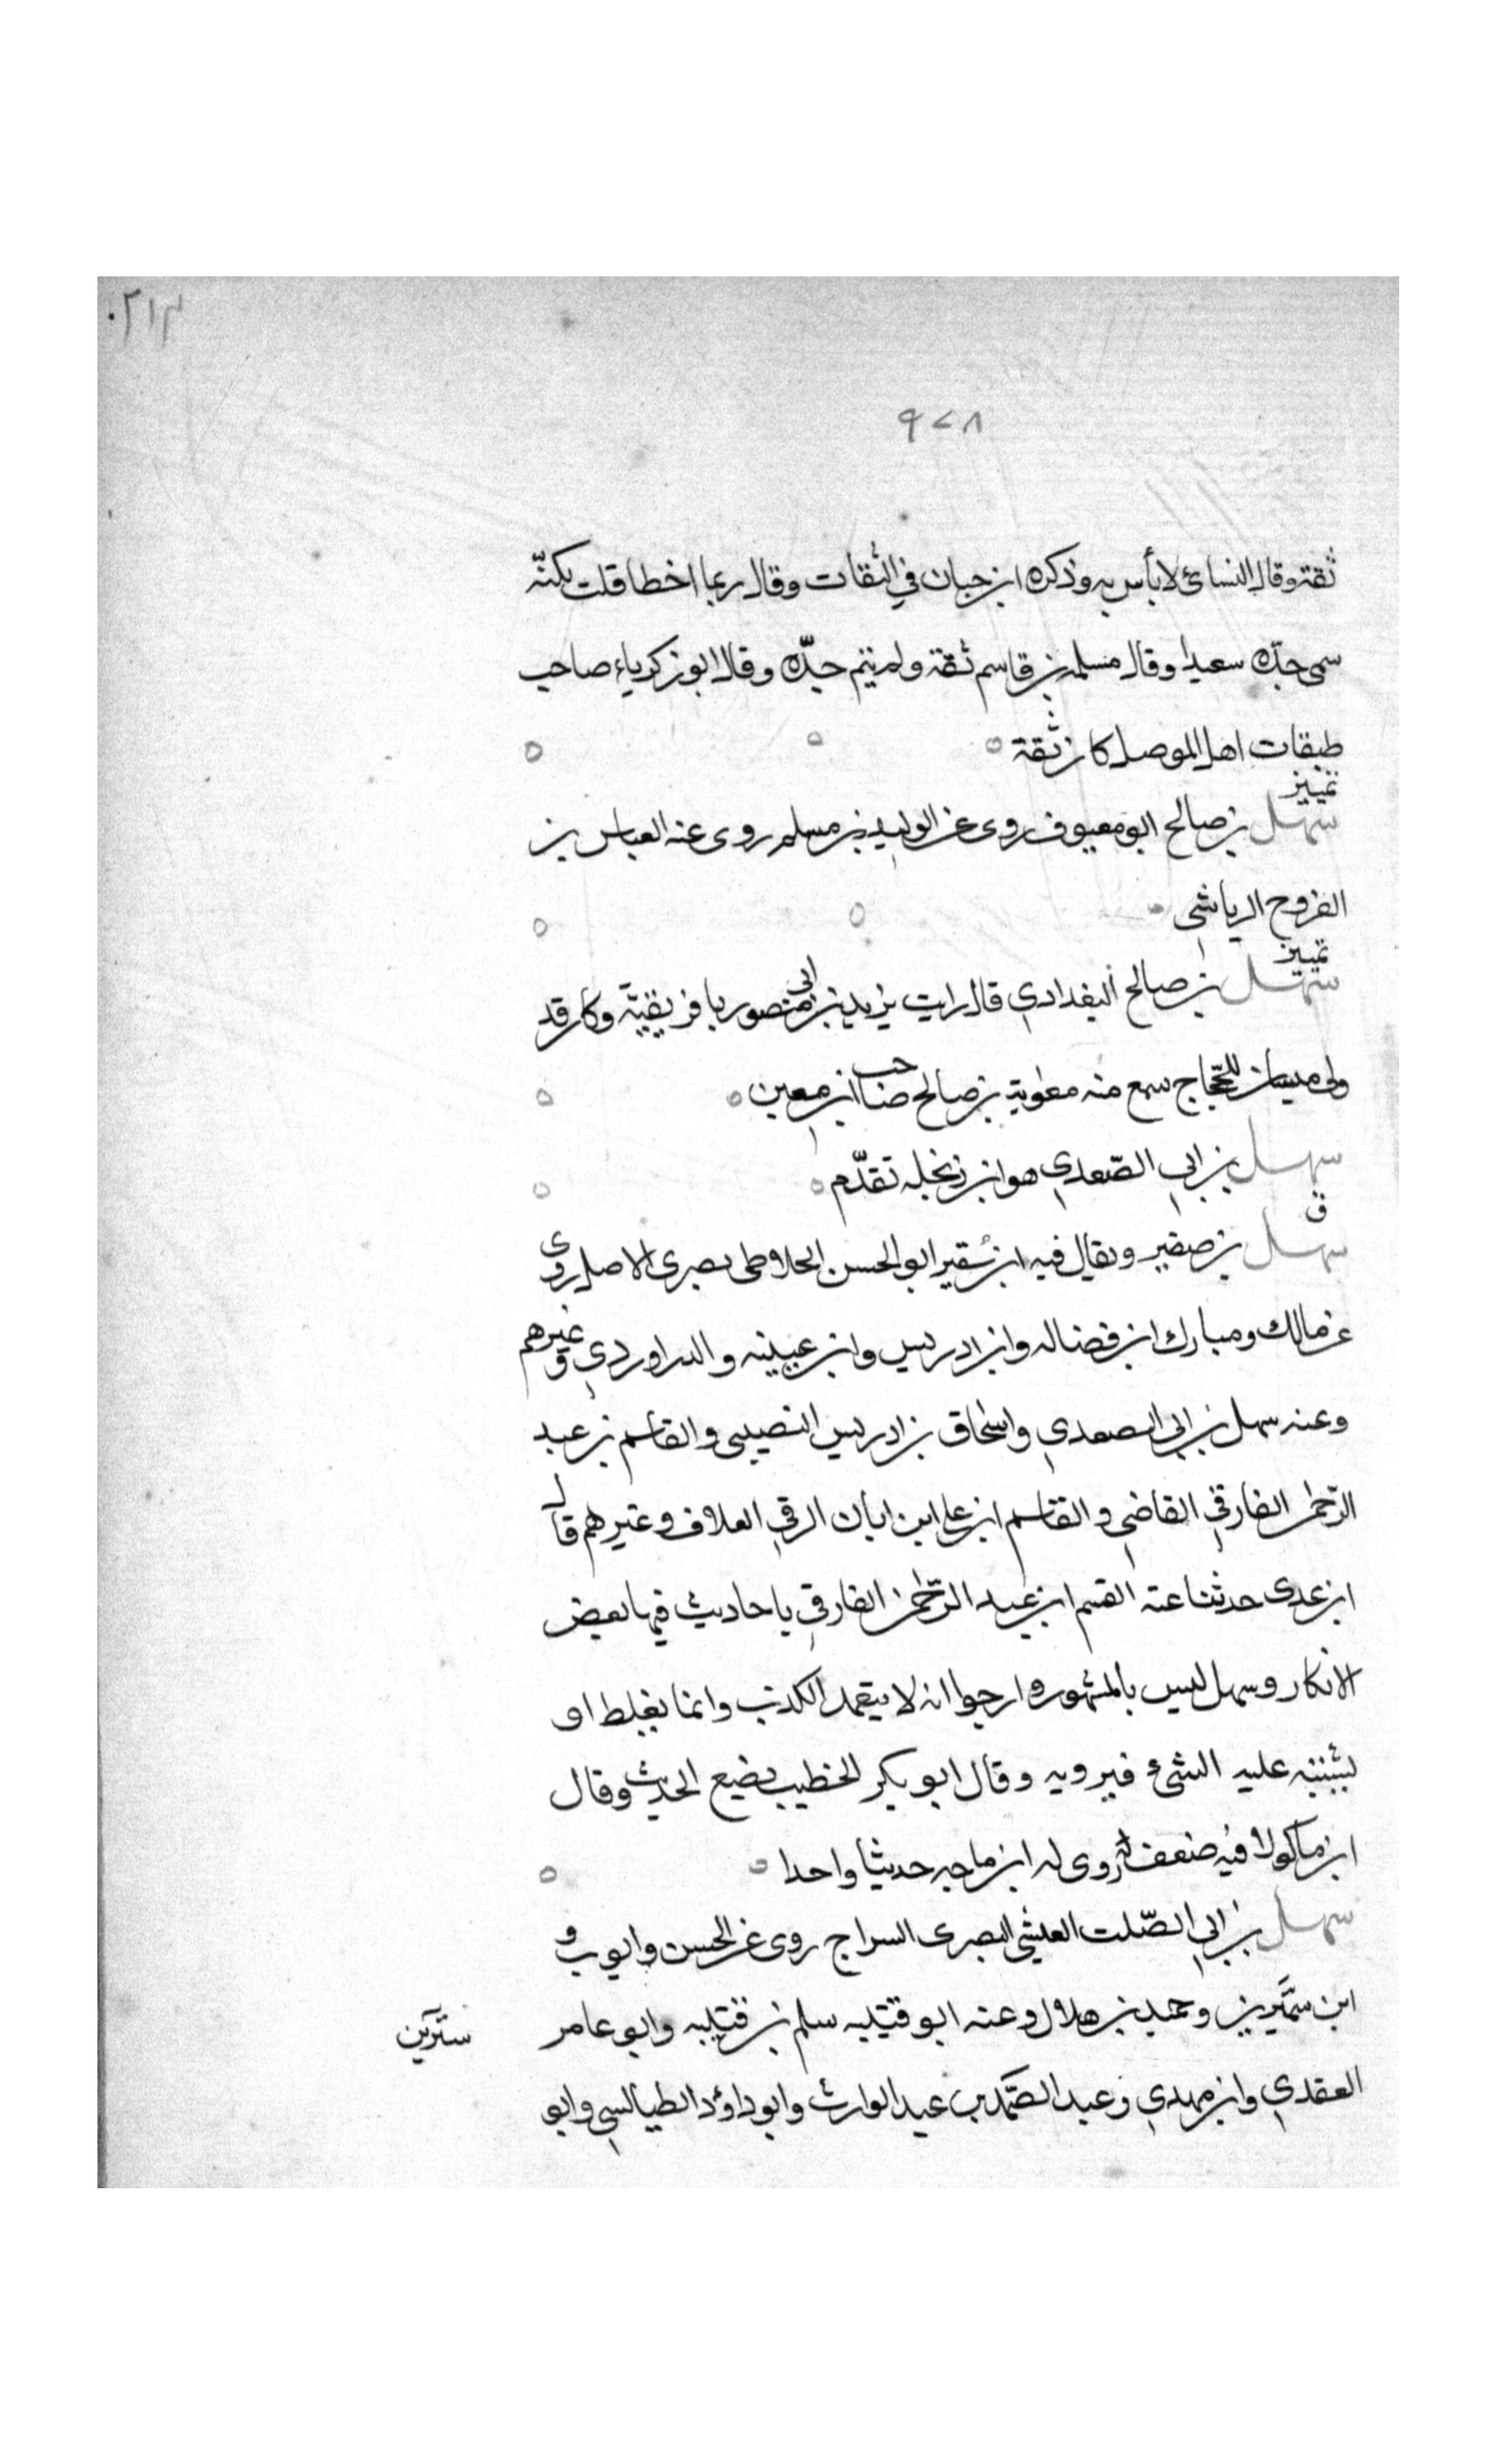 ٢١٣
٩٧٨
ثقة وقال النسائ لا بأس به وذكره ابن حبان في الثقات وقال ربما اخطا قلت لكنّه
سمى جدّه سعيدا وقال مسلمه بن قاسم ثقة ولم يتم جدّه وقال ابو زكرياء صاحب
طبقات اهل الموصل كان ثقة
تمييز
سهل بن صالح ابو معيوف روى عن الوليد بن مسلم روى عنه العباس بن
الفروح الرياشي
تمييز
سهل بن صالح البغدادي قال رايت يزيد بن ابي منصور بافريقيّة وكان قد
ولى ميسان للحجّاج سمع منه معٰوية بن صالح صاحب ابن معين
سهل بن ابي الصّعدي هو ابن زنجله تقدّم
ق
سهل بن صقير ويقال فيه ابن سقير ابو الحسن الخلاطى بصرى الاصل روى
عن مالك ومبارك ابن فضاله وابن ادريس وابن عيينه والدراوردي وغيرهم
وعنه سهل بن ابي الصعدي واسحٰاق بن ادريس النصيبى والقاسم بن عبد
الرّحمٰن الفارقي القاضي والقاسم ابن على ابن ابان الرقي العلاف وغيرهم قال
ابن عدى حدثنا عنه القسم ابن عبد الرّحمٰن الفارقي باحاديث فيها بعض
الانكار وسهل ليس بالمشهور وارجوا انه لا يتعمد الكذب وانما يغلط او
يشتبه عليه الشئ فيرويه وقال ابو بكر الخطيب يضيع الحديث وقال
ابن ماكولا فيه ضعف روى له ابن ماجه حديثا واحدا
سهل بن ابي الصّلت العيشي البصرى السراج روى عن الحسن وايوب و
ابن سيريز وحميد بن هلال وعنه ابو قتيبه سلم بن قتيبه وابو عامر
سيرين
العقدي وابن مهدي وعبد الصّمد بن عبد الوارث وابو داؤد الطيالسي وابو